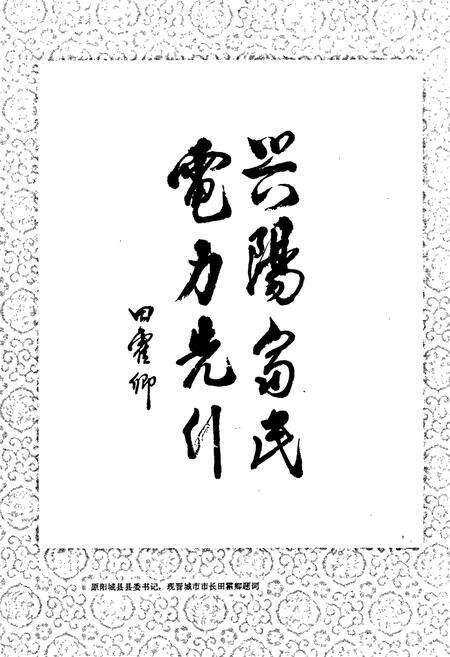 兴陽富民
電力先行
田霍卿
原阳城县县委书记，现晋城市市长田霍卿题词